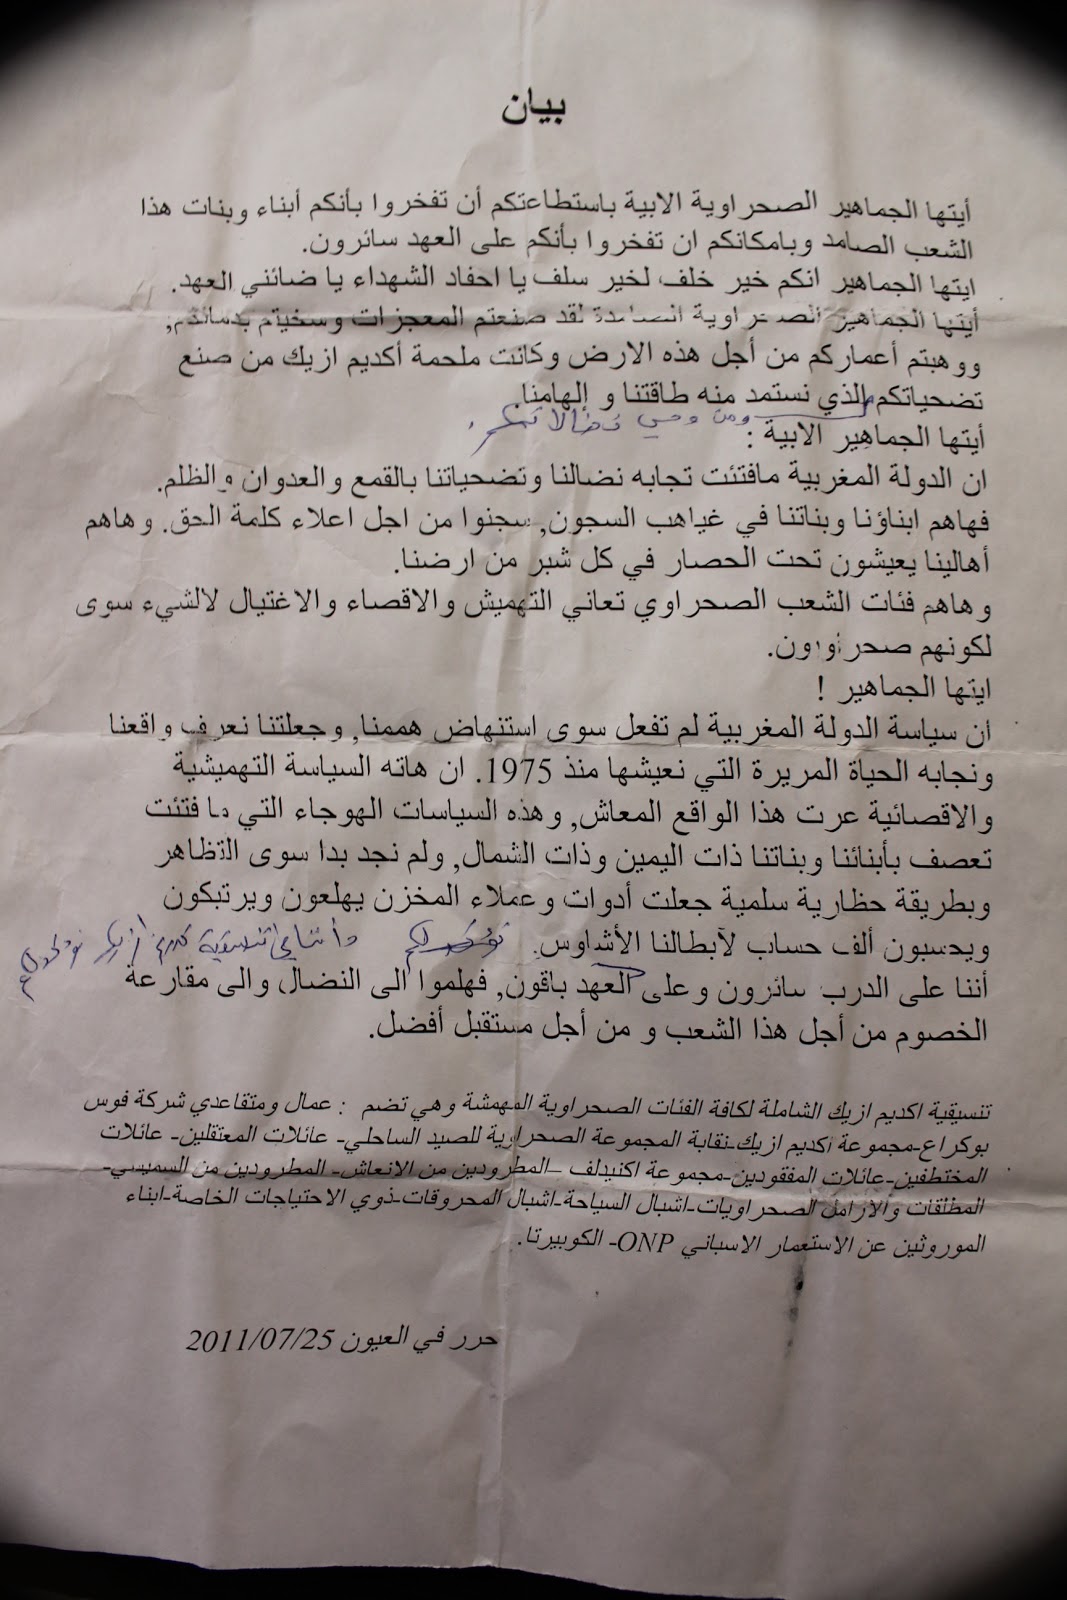 بيان
أيتها الجماهير الصحراوية الابية باستطاعتكم أن تفخروا بأنكم أبناء وبنات هذا
الشعب الصامد وبامكانكم ان تفخروا بأنكم على العهد سائرون.
ايتها الجماهير انكم خير خلف لخير سلف يا احفاد الشهداء يا ضائني العهد.
أيتها الجماهير الصحراوية الصامدة لقد صنعتم المعجزات وسخيتم بدمائكم,
ووهبتم أعماركم من أجل هذه الارض وكانت ملحمة أكديم ازيك من صنع
تضحياتكم الذي نستمد منه طاقتنا و إلهامنا.
ومن وحي نضالاتكم.
أيتها الجماهير الابية :
ان الدولة المغربية مافتئت تجابه نضالنا وتضحياتنا بالقمع والعدوان والظلم.
فهاهم ابناؤنا وبناتنا في غياهب السجون, سجنوا من اجل اعلاء كلمة الحق. وهاهم
أهالينا يعيشون تحت الحصار في كل شبر من ارضنا.
وهاهم فئات الشعب الصحراوي تعاني التهميش والاقصاء والاغتيال لالشيء سوى
لكونهم صحراويون.
ايتها الجماهير !
ان سياسة الدولة المغربية لم تفعل سوى استنهاض هممنا, وجعلتنا نعرف واقعنا
ونجابه الحياة المريرة التي نعيشها منذ 1975. ان هاته السياسة التهميشية
والاقصائية عرت هذا الواقع المعاش, وهذه السياسات الهوجاء التي ما فتئت
تعصف بأبنائنا وبناتنا ذات اليمين وذات الشمال, ولم نجد بدا سوى التظاهر
وبطريقة حظارية سلمية جعلت أدوات وعملاء المخزن يهلعون ويرتبكون
ويحسبون ألف حساب لآبطالنا الأشاوس. وأننا في تنسيقية كديم ازيك نؤكد لكم
أننا على الدرب سائرون وعلى العهد باقون, فهلموا الى النضال والى مقارعة
الخصوم من أجل هذا الشعب و من أجل مستقبل أفضل.
تنسيقية اكديم ازيك الشاملة لكافة الفئات الصحراوية المهمشة وهي تضم : عمال ومتقاعدي شركة فوس
بوكراع-مجموعة أكديم ازيك-نقابة المجموعة الصحراوية للصيد الساحلي- عائلات المعتقلين- عائلات
المختطفين-عائلات المفقودين-مجموعة اكنيدلف –المطرودين من الانعاش- المطرودين من السميسي-
المطلقات والارامل الصحراويات-اشبال السياحة-اشبال المحروقات-ذوي الاحتياجات الخاصة-ابناء
الموروثين عن الاستعمار الاسباني ONP- الكوبيرتا.
حرر في العيون 2011/07/25